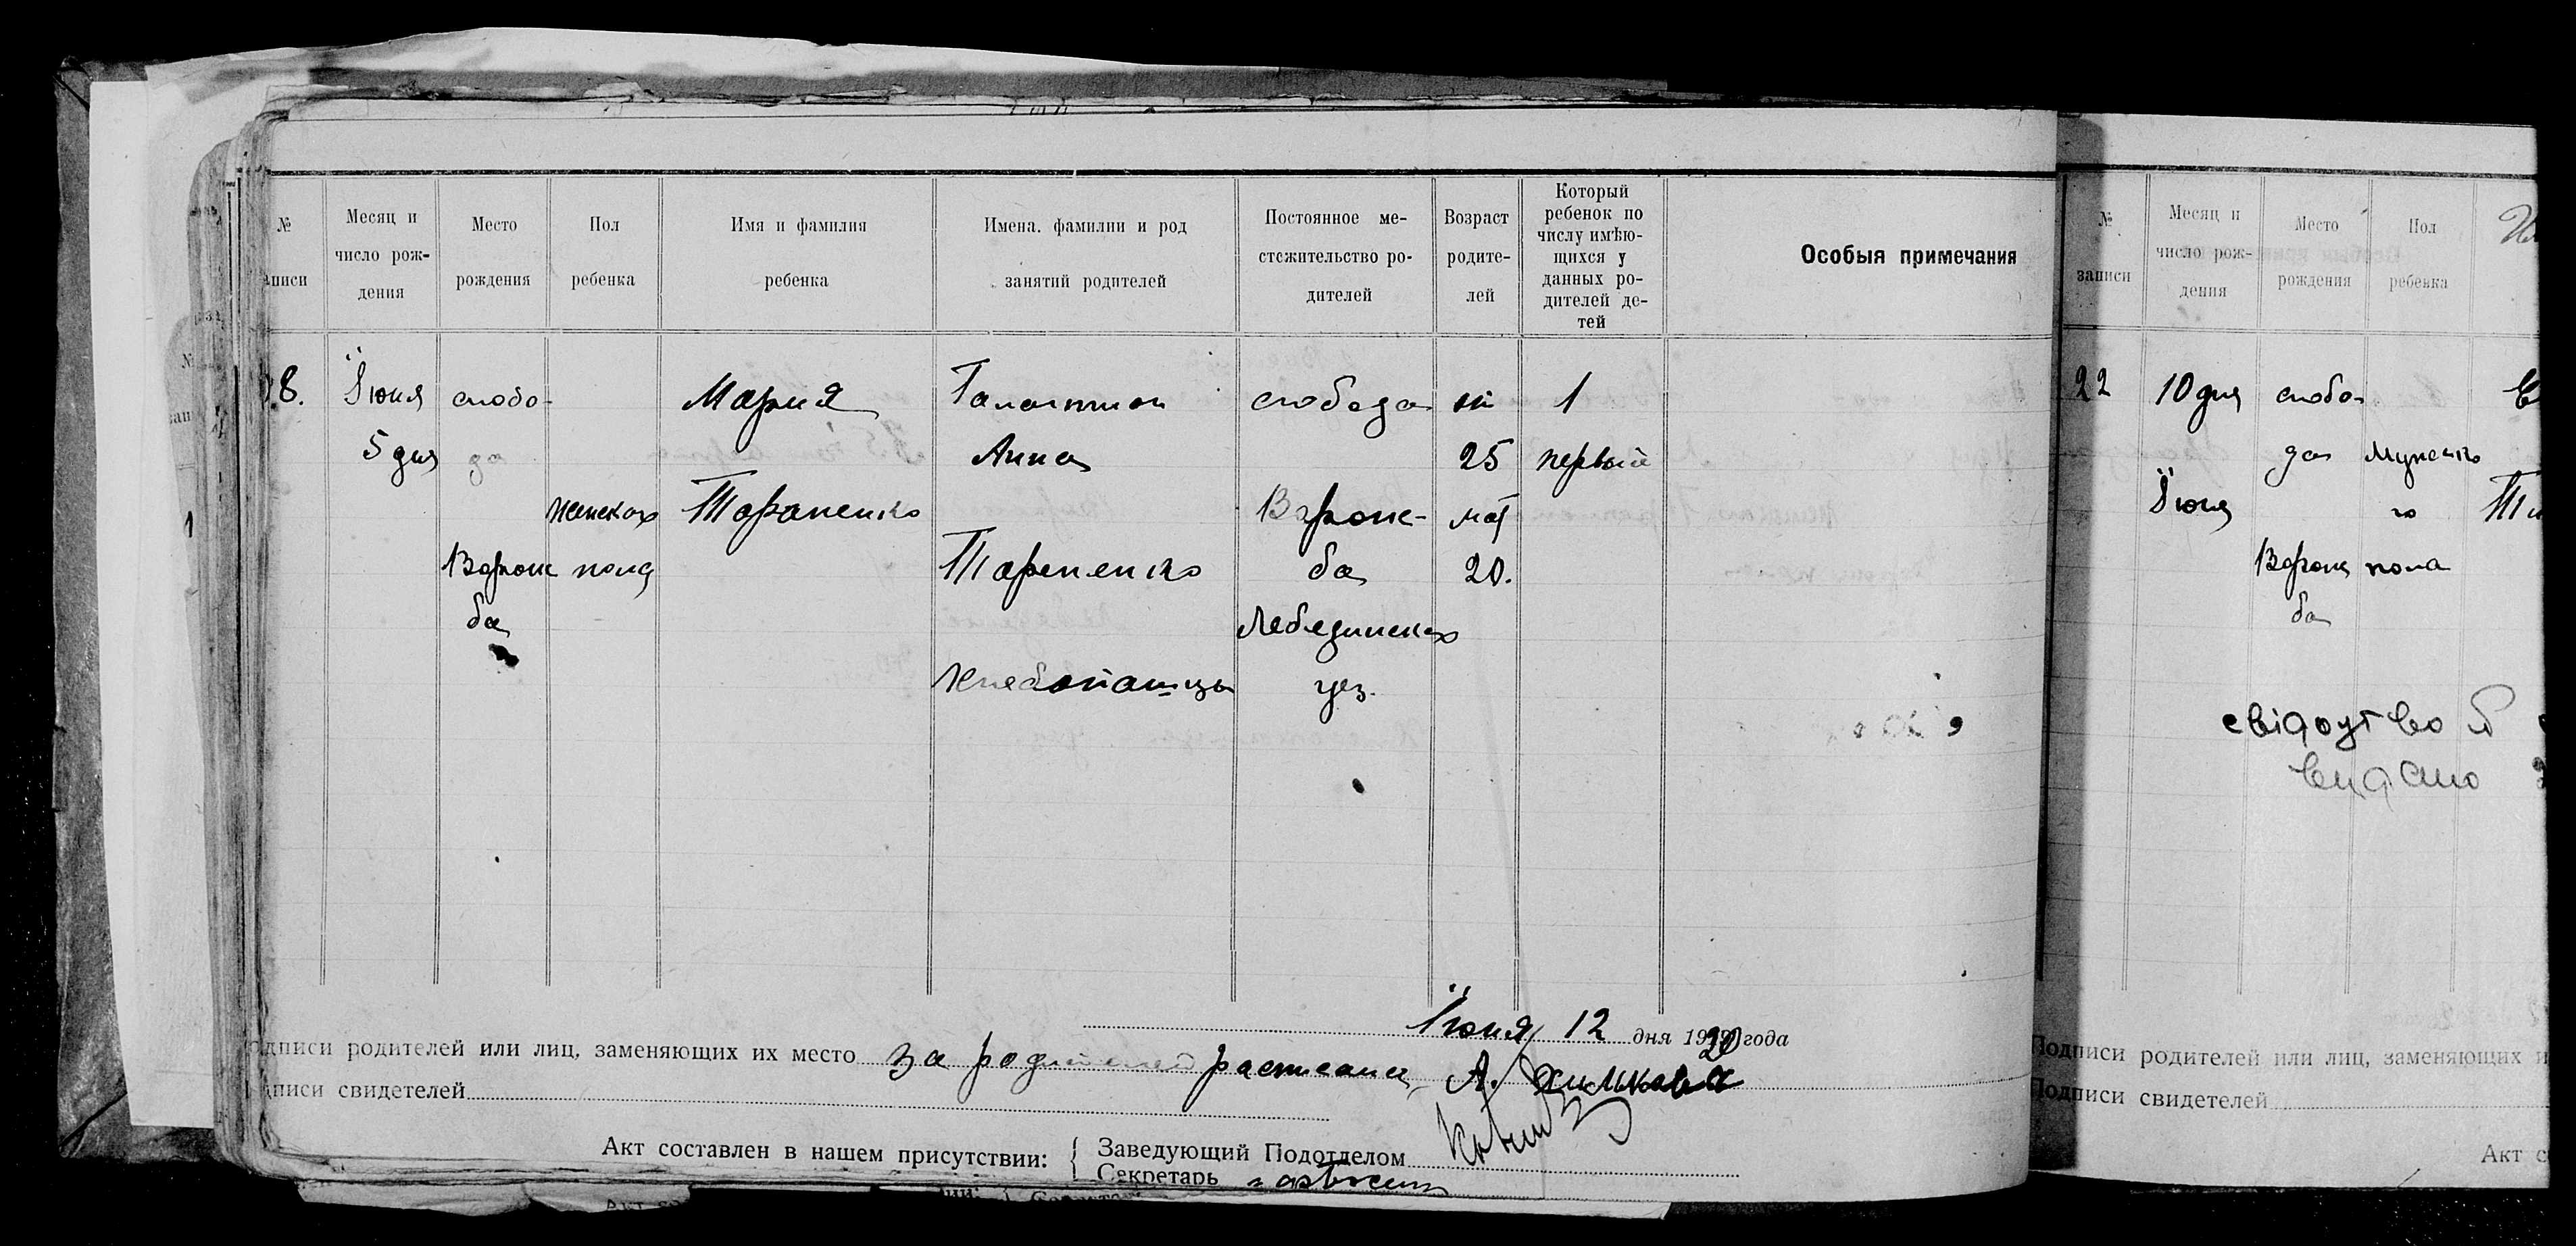 №
записи
Месяц и
число рож-
дения
Место
рождения
Пол
ребенка
Имя и фамилия
ребенка
Имена. фамилии и род
занятий родителей
Постоянное ме-
стожительство ро-
дителей
Возраст
родите-
лей
Который
ребенок по
числу имѣю-
щихся у
данных ро-
дителей де-
тей
Особыя примечания
8.
Їюня
5 дня
слобо-
да
Ворож
ба
женскаго
пола
Мария
Тараненко
Анна
Тараненко
хлебопашцы
слобода
Ворож-
ба
Лебединскаго
уез.
25
мат
20.
1
первый
Їюня 12 дня 1920 года
Подписи родителей или лиц, заменяющих их место за родителей расписалась А.
Подписи свидетелей
Акт составлен в нашем присутствии:
Заведующий Подотделом
Секретарь
№
записи
Месяц и
число рож-
дения
Место
рождения
Пол
ребенка
22
10 дня
Їюня
слобо-
да
Ворож
ба
Мужско
го
пола
свідоцтво
видано
Подписи родителей или лиц, заменяющих и
Подписи свидетелей
Акт с